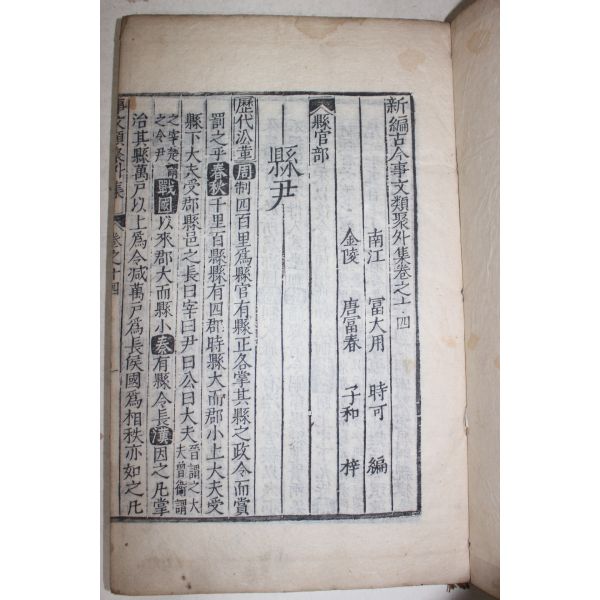 新編古今事文類聚外集卷之十四
南江 冨大用 時可 編
金陵 唐冨春 子和 梓
縣官部
縣尹
歷代沿革周制四百里爲縣官有縣正各掌其縣之政令而賞
罰之乎春秋千里百縣縣有四郡時縣大而郡小上大夫受
縣下大夫受郡縣邑之長曰宰曰尹曰公曰大夫晉謂之大夫魯衛謂
之宰楚謂之令尹戰國以來郡大而縣小秦有縣令長漢因之凡掌
治其縣萬戶以上爲令减萬戶爲長侯國爲相秩亦如之凡
事文類聚外集 卷之十四